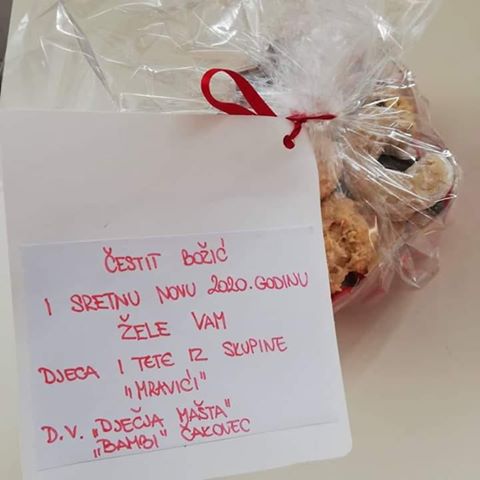 ČESTIT BOŽIĆ
I SRETNU NOVU 2020. GODINU
ŽELE VAM
DJECA I TETE IZ SKUPINE
"MRAVIĆI"
D.V. "DJEČJA MAŠTA"
"BAMBI" ČAKOVEC